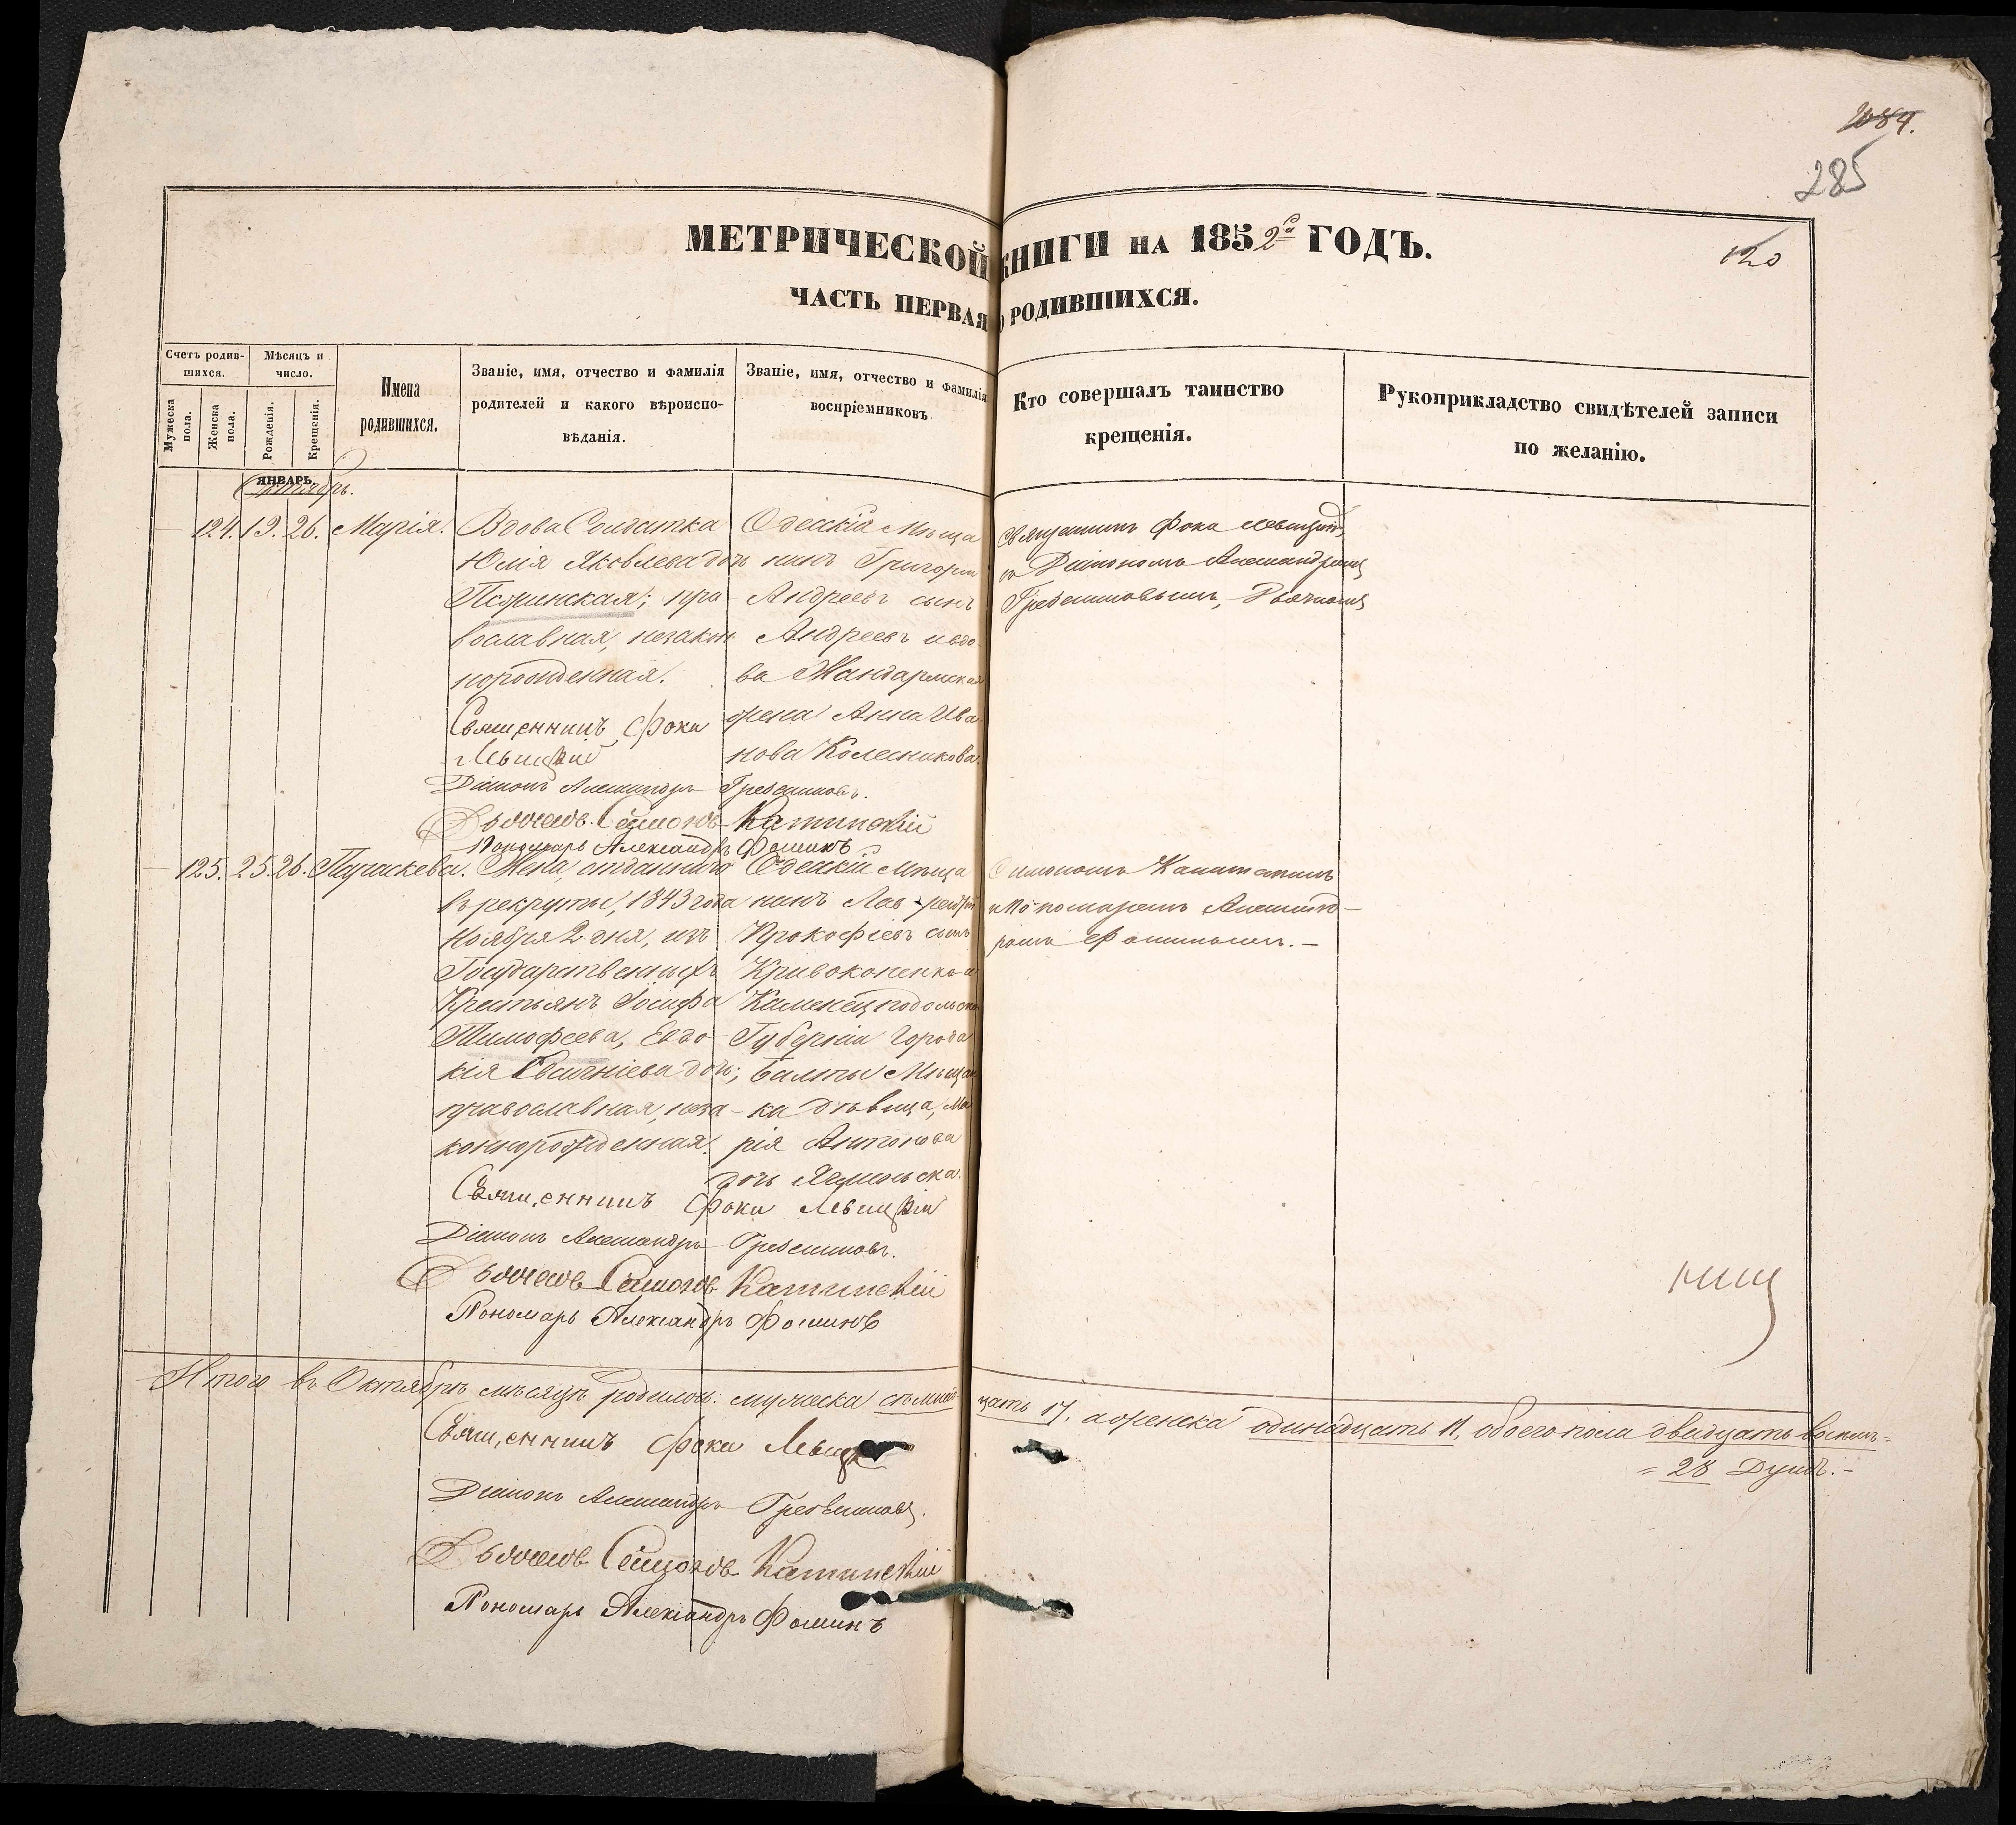 1084.
285
120
МЕТРИЧЕСКОЙ КНИГИ НА 1852го ГОДЪ.
ЧАСТЬ ПЕРВАЯ О РОДИВШИХСЯ.
Счетъ родив-
шихся.
Мужеска пола.
Женска пола.
Мѣсяцъ и
число.
Рожденія.
Крещенія.
Имена
родившихся.
Званіе, имя, отчество и фамилія
родителей и какого вѣроиспо-
вѣданія.
Званіе, имя, отчество и фамилія
воспріемниковъ.
Кто совершалъ таинство
крещенія.
Рукоприкладство свидѣтелей записи
по желанію.
ЯНВАРЬ.
Октябрь.
124. 19. 26. Марія.
Вдова Солдатка
Юлія Яковлева дочь
пра
вославная, незакон
норожденная.
Одесскій Мѣща
нинъ Григорій
Андреевъ сынъ
Андреевъ и вдо
ва Жандармская
жена Анна Ива
нова Колесникова.
Священникъ Фока Левицкій,
съ Діакономъ Александромъ
Гребенниковымъ, Дьячкомъ
Священникъ Фока
Левицкій
Діаконъ Александръ Гребенниковъ.
Дьячекъ Симонъ
Пономарь Александръ Фоминъ
125. 25. 26. Параскева.
Жена, отданнаго
въ рекруты, 1843 года
Ноября 2 дня, изъ
Государственныхъ
Крестьянъ Іосифа
Тимофеева, Евдо
кія дочь;
православная, неза-
коннорожденная.
Одесскій Мѣща
нинъ
Прокофіевъ сынъ
Кривокопенко и
Каменецподольской
Губерніи Города
Балты Мѣщан
ка дѣвица, Ма
рія Антонова
дочь
Симономъ
и Пономаремъ Александ-
ромъ Фоминымъ.-
Священникъ Фока Левицкій
Діаконъ Александръ Гребенниковъ.
Дьячекъ Симонъ
Пономарь Александръ Фоминъ
Итого въ Октябрѣ мѣсяцѣ родилось: мужеска семнад-цать 17. а женска одинадцать 11. обоего пола двадцать восемь=
= 28 Душъ.-
Священникъ Фока
Діаконъ Александръ Гребенниковъ.
Дьячекъ Симонъ
Пономарь Александръ Фоминъ